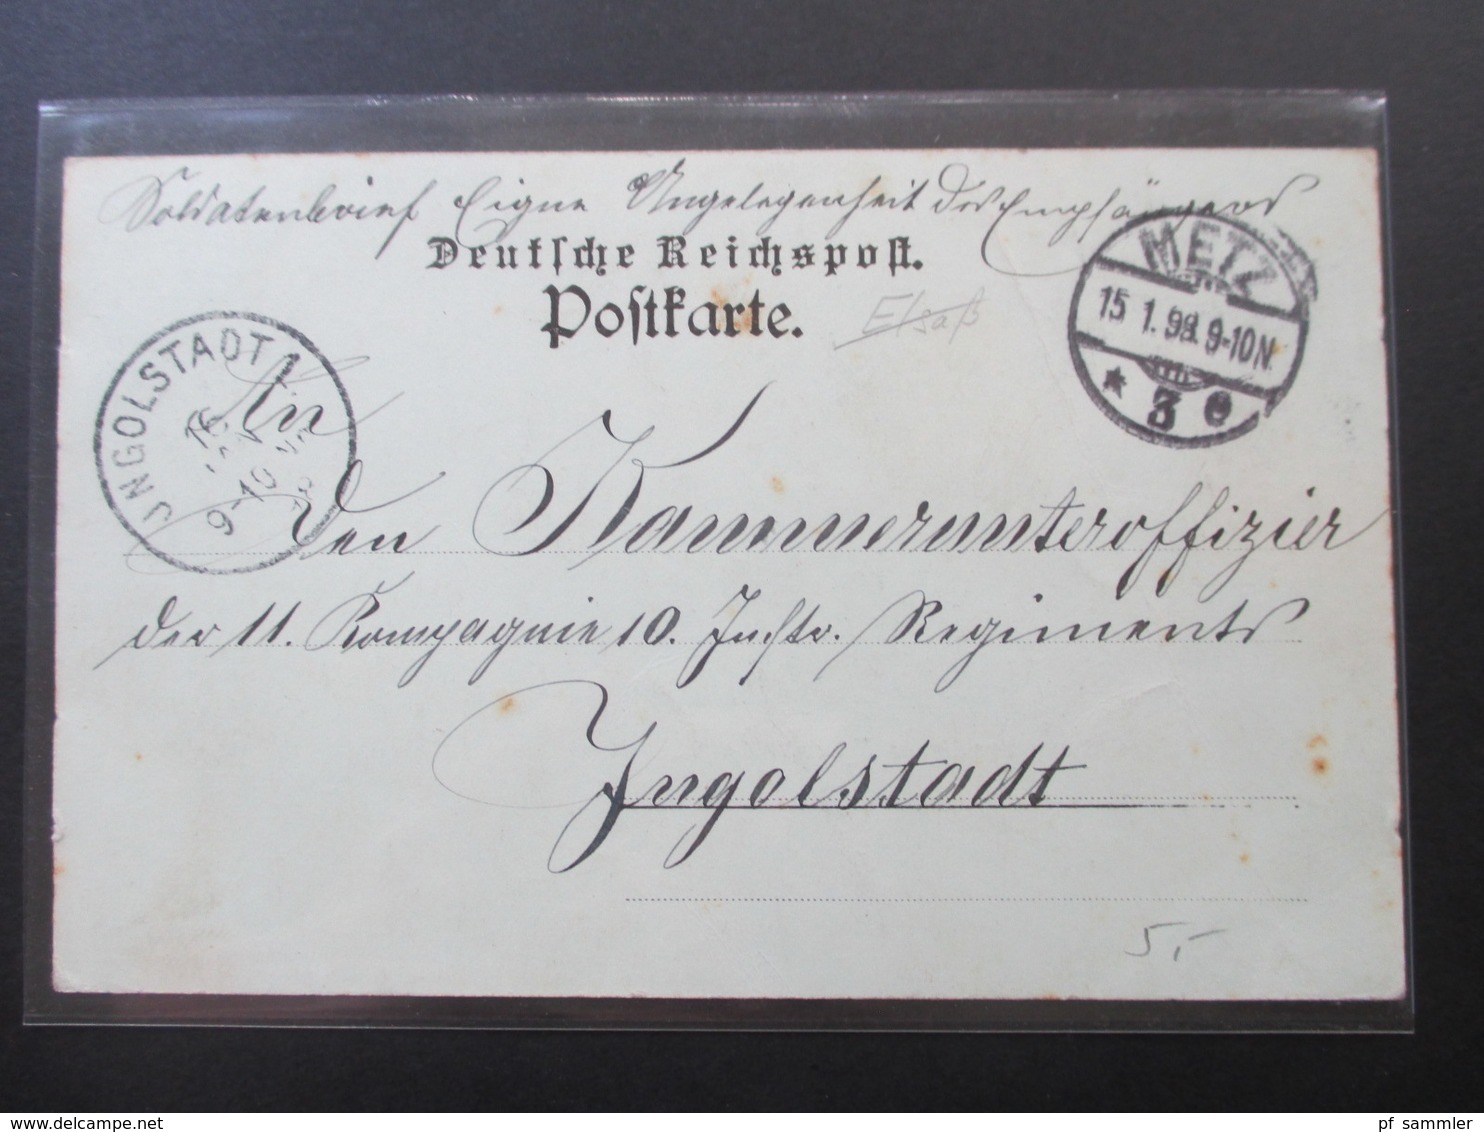 Soldatenbrief Eigne Angelegenheit des Empfängers
Deutsche Reichspost.
Postkarte.
Elsaß
METZ
15 1.98. 9-10N.
* 3 e
INGOLSTADT
16
9-10
An
Den Kammerunteroffizier
der 11. Kompagnie 10. Inftr. Regiments
Ingolstadt
5,-
www.delcampe.net
pf_sammler